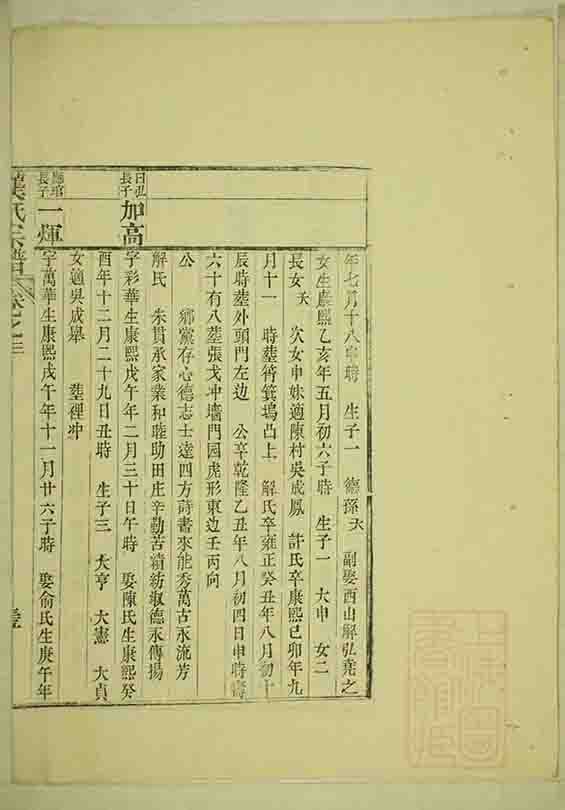 年七月十八申時　生子一　德孫夭　副娶西山解弘堯之
女生康熙乙亥年五月初六子時　生子一　大申　女二
長女夭　次女申妹適陳村吳成鳳　許氏卒康熙己卯年九
月十一　時塟筲箕塢凸上　解氏卒雍正癸丑年八月初十
辰時塟外頭門左边　公卒乾隆乙丑年八月初四日申時壽
六十有八塟張戈冲墻門园虎形東边壬丙向
公　鄉黨存心德志士達四方詩書來能秀萬古永流芳
解氏　朱貫承家業和睦助田庄辛勤苦績紡淑德永傳揚
曰弘長子
加高
字彩華生康熙戊午年二月三十日午時　娶陳氏生康熙癸
酉年十二月二十九日丑時　生子三　大亨　大憲　大貞
女適吳成舉　塟裡冲
長子
一煇
字萬華生康熙戊午年十一月廿六子時　娶俞氏生庚午年
氏宗譜　卷之三